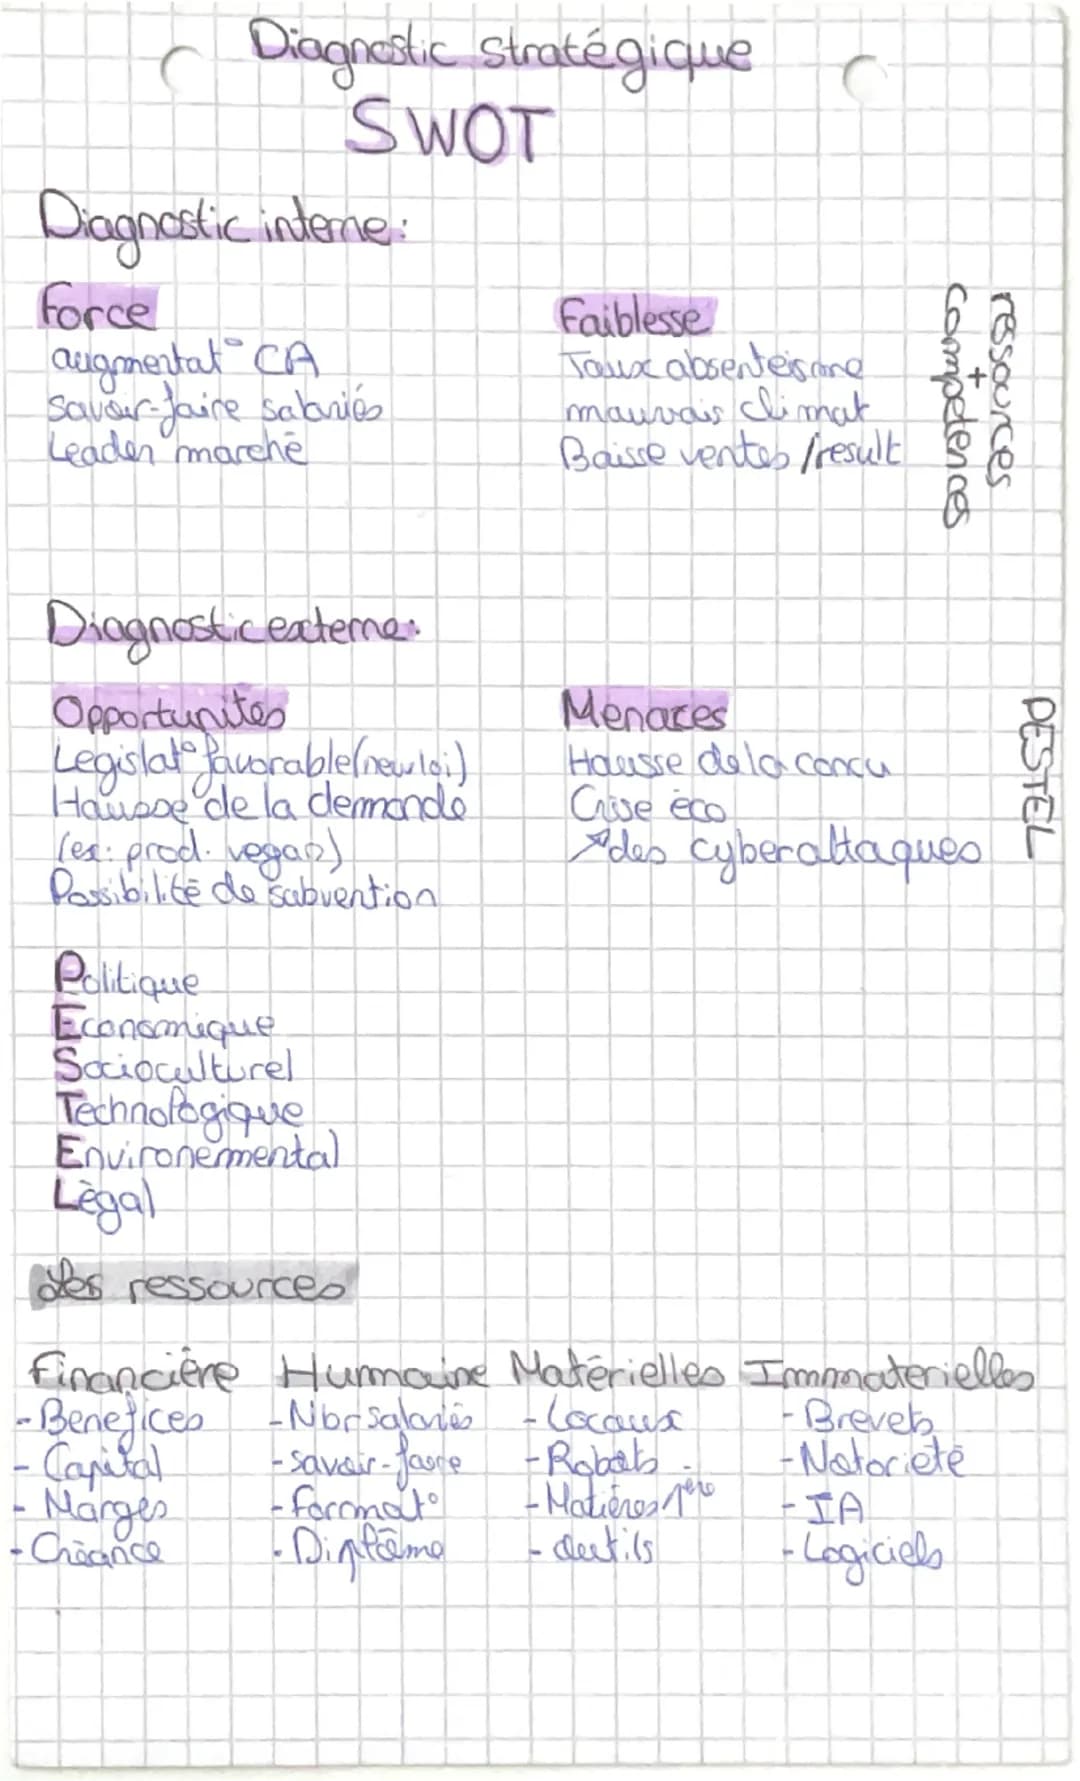 Diagnostic stratégique
SWOT
Diagnostic interne:
Force
augmentat° CA
savoir-faire salariés
Leader marché
Faiblesse
Taux absenteisme
mauvais climat
Baisse ventes /result
ressources
+
compétences
Diagnostic externe:
Opportunités
Legislat° favorable (new loi)
Hausse de la demande
(ex: prod. vegan)
Possibilité de subvention
Menaces
Hausse de la concu
Crise éco
↗ des cyberattaques
PESTEL
Politique
Economique
Socioculturel
Technologique
Environemmental
Légal
Les ressources
Financière
- Benefices
- Capital
- Marges
- Créance
Humaine
- Nbr salariés
- savoir-faire
- format°
- Diplôme
Matérielles
- Locaux
- Robots
- Matières 1ère
- outils
Immaterielles
- Brevets
- Notorieté
- IA
- Logiciels